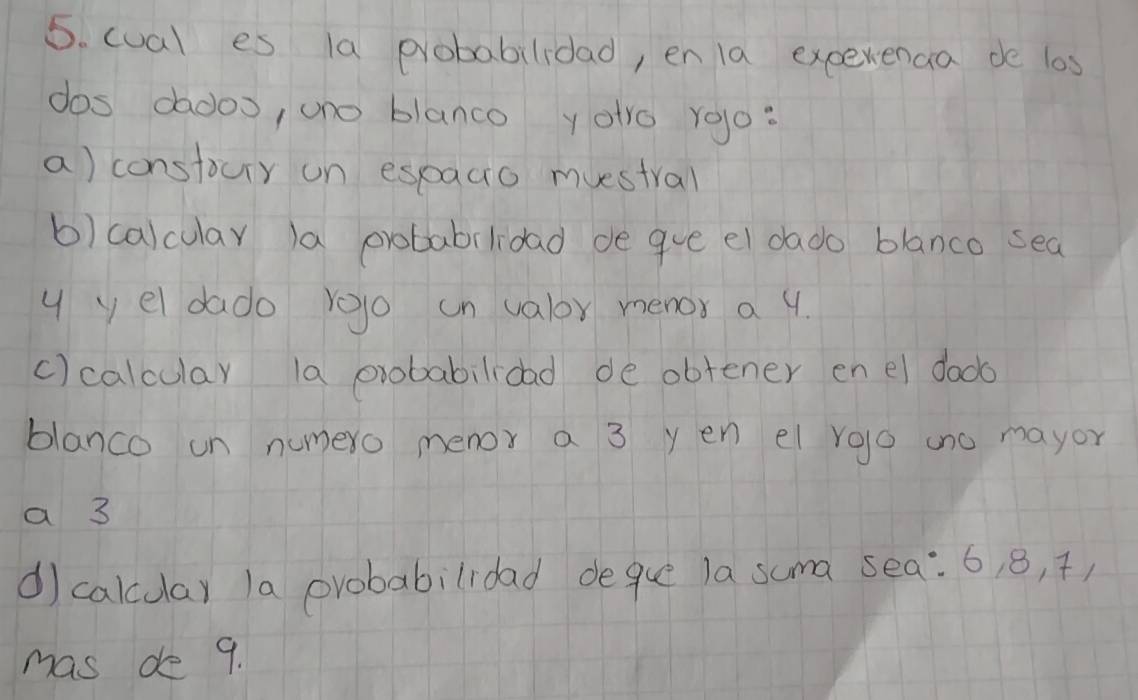 5. cual es la probabilidad, en la experiencia de los
dos dados, uno blanco y otro rojo:
a) construir un espacio muestral
b) calcular la probabilidad de que el dado blanco sea
4 y el dado rojo un valor menor a 4.
c) calcular la probabilidad de obtener en el dado
blanco un numero menor a 3 y en el rojo uno mayor
a 3
d) calcular la probabilidad de que la suma sea: 6, 8, 7,
mas de 9.